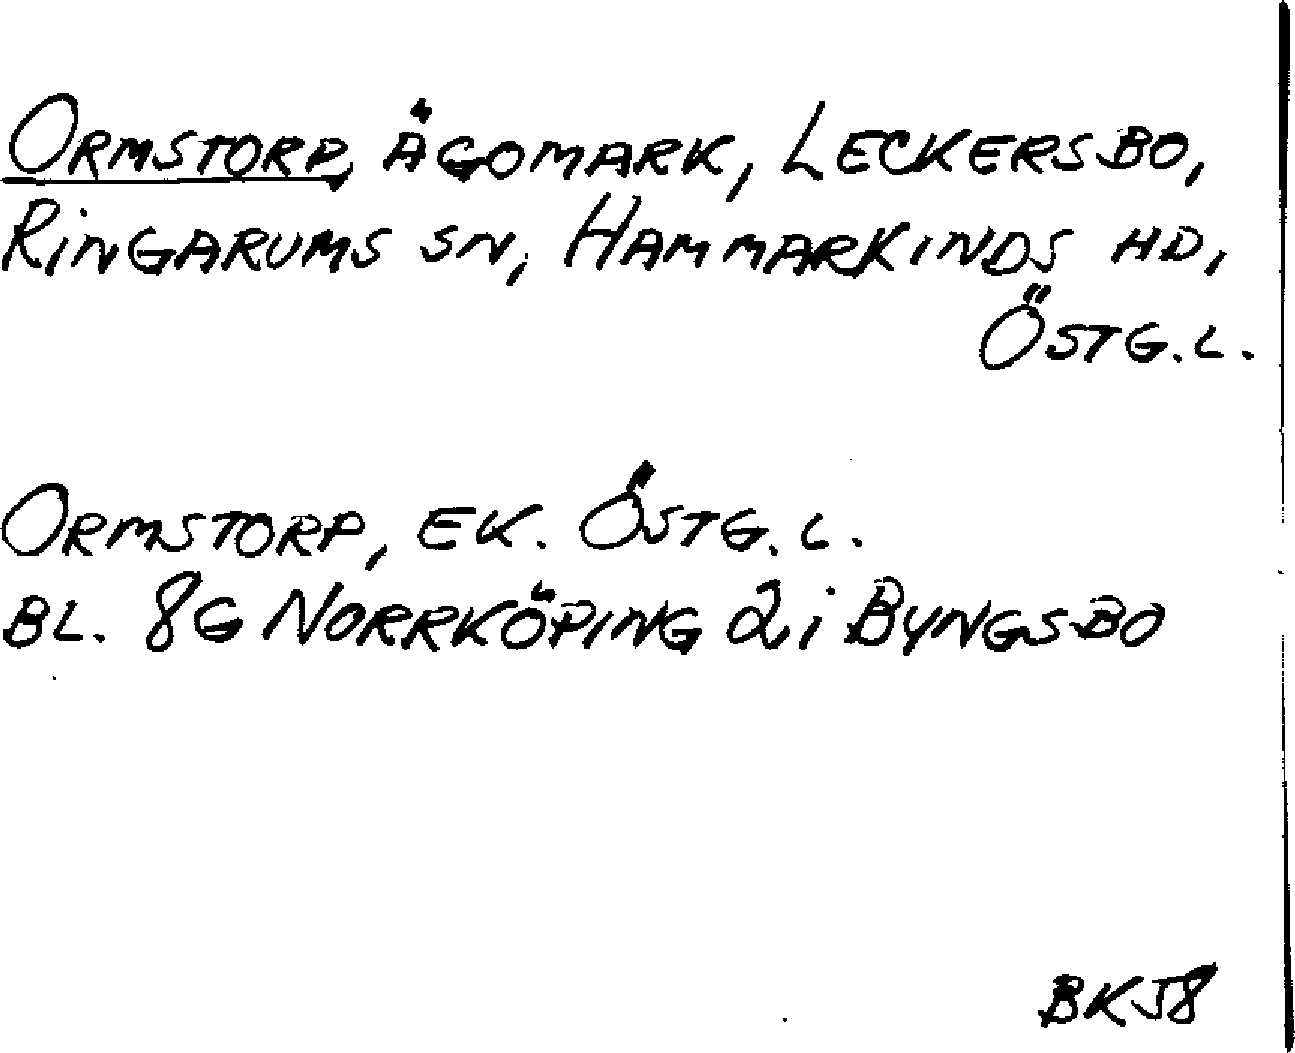 ORMSTORP, ÄGOMARK, LECKERSBO,
RINGARUMS SN, HAMMARKINDS HD,
ÖSTG.L.
ORMSTORP, EK. ÖSTG.L.
BL. 8G NORRKÖPING 2i BYNGSBO
BKJ8